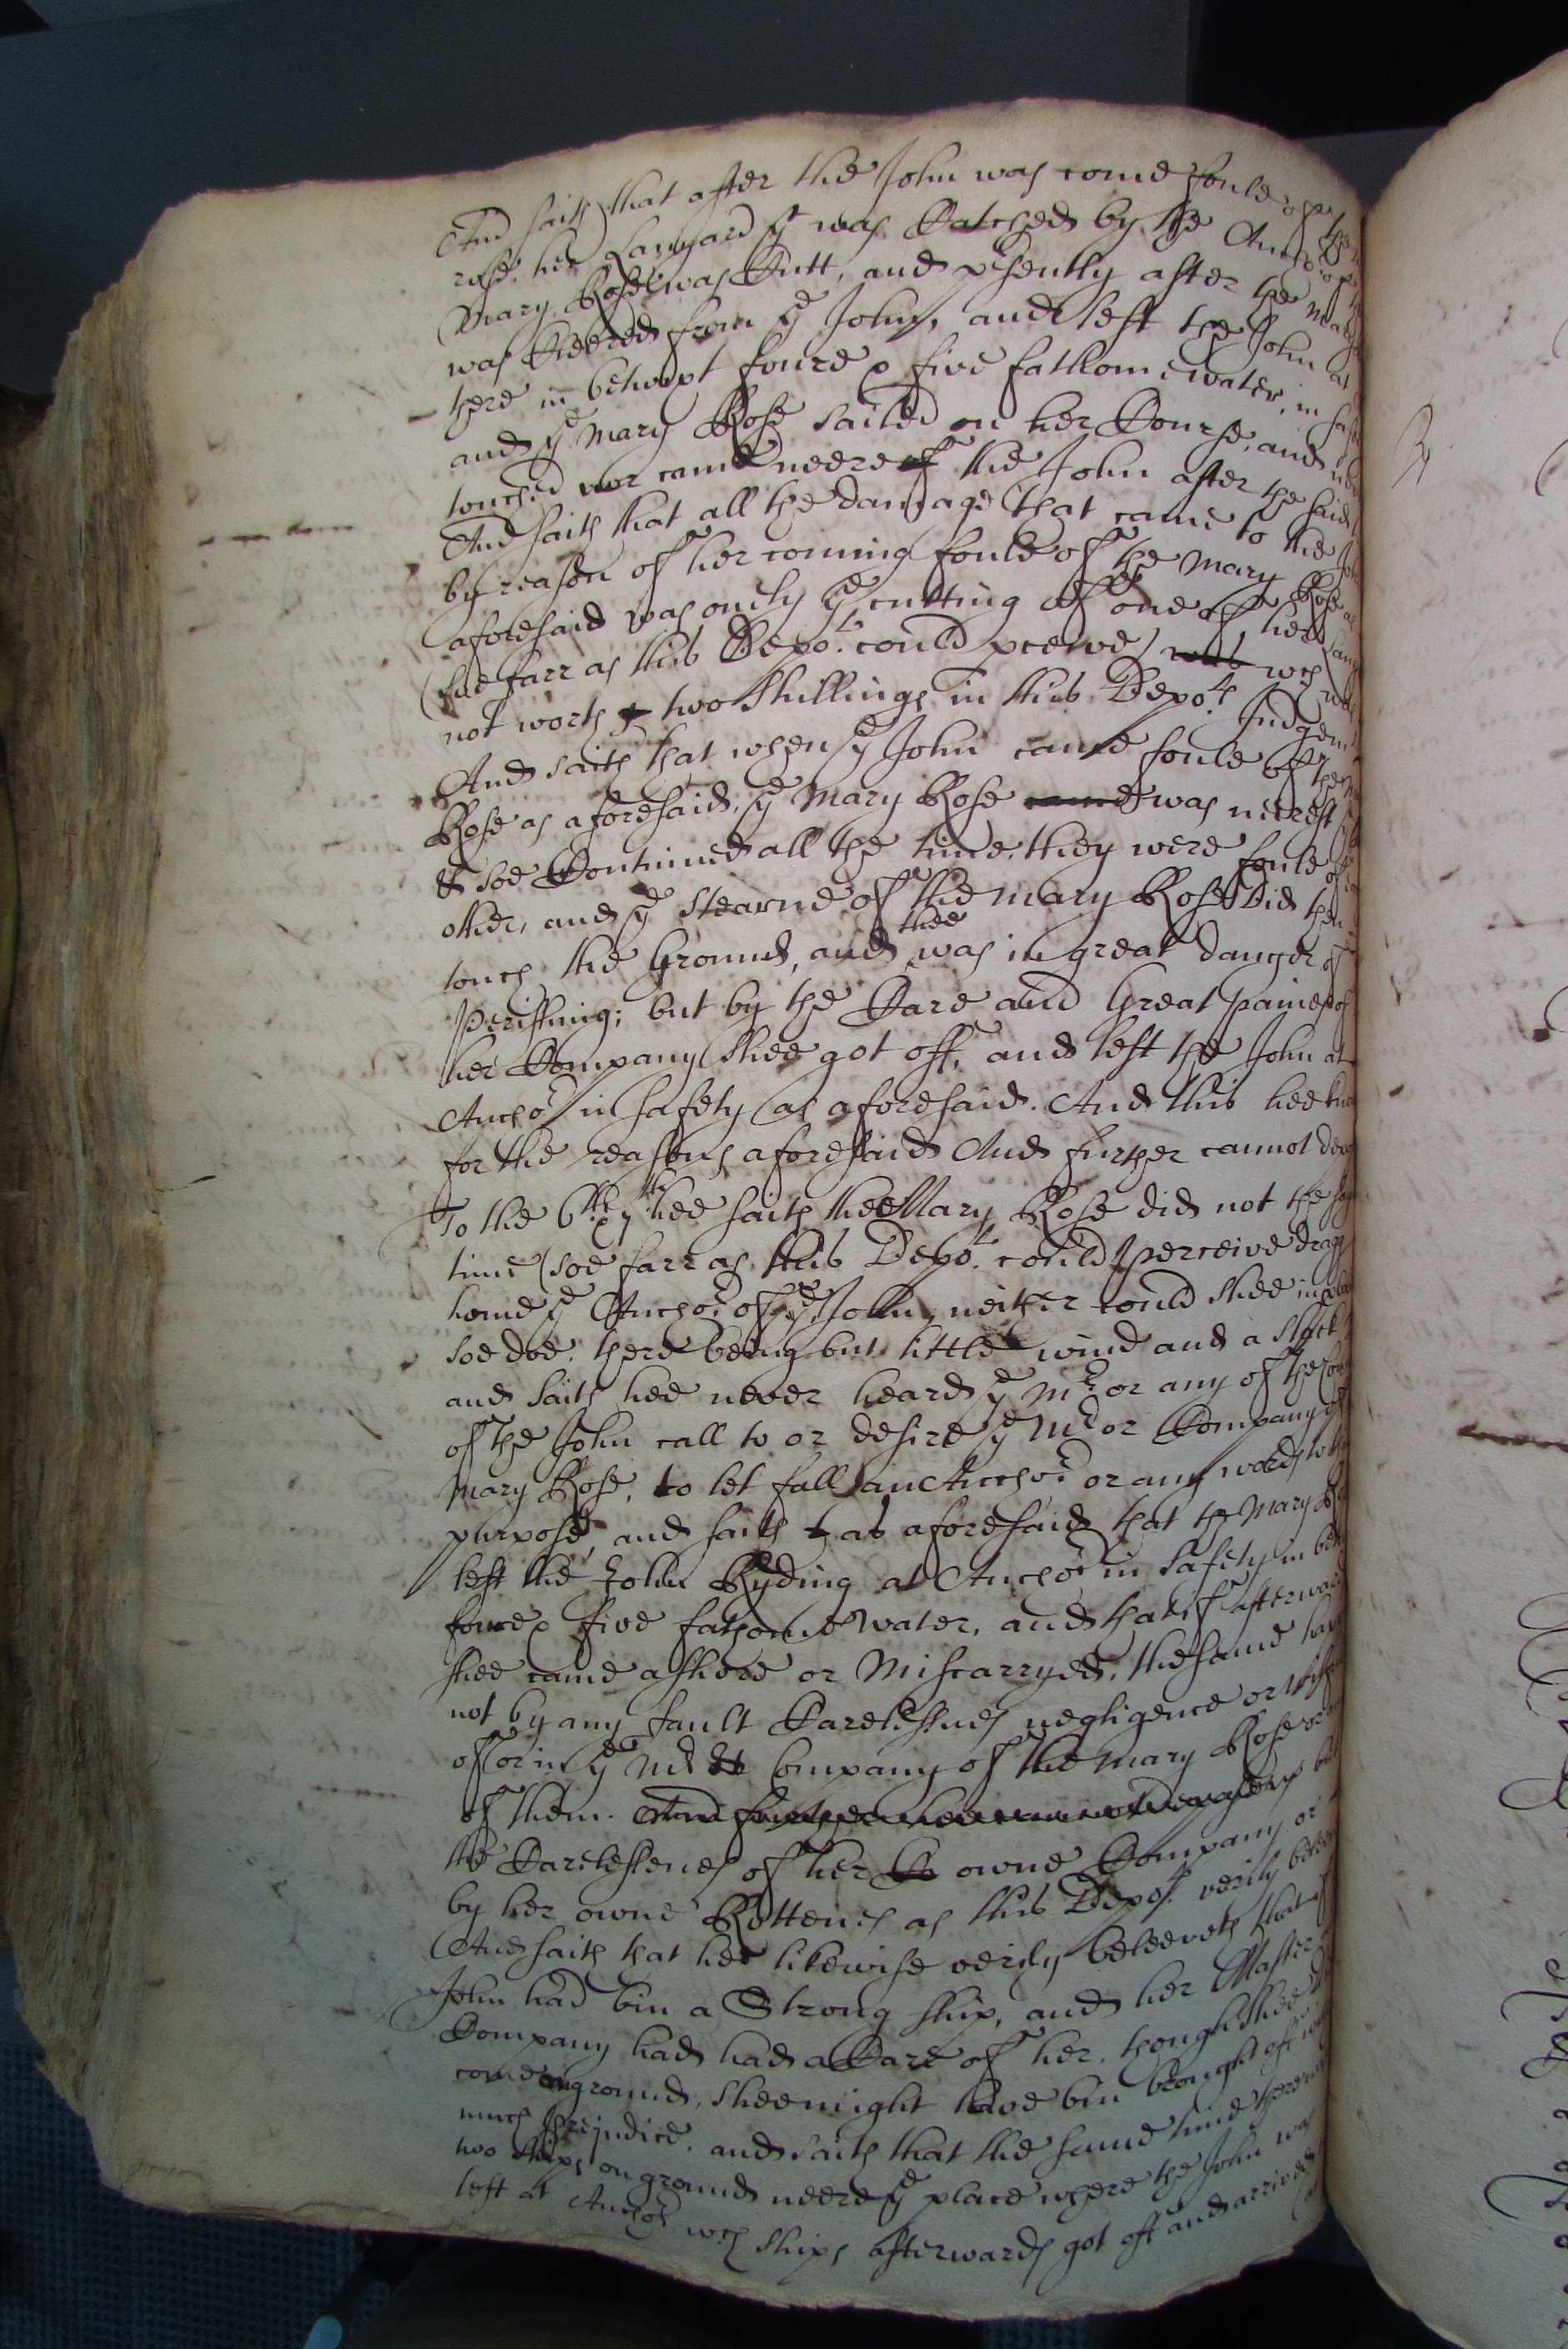 And saith that after the John was come foule of the
rose her Lanyard yt was Catched by the Anchor of the
Mary Rose was Cutt, and psently after the Mary
was Cleered from ye John, and left the John at
there in betwixt foure & five fathome water, in safe
and ye Mary Rose sailed on her Course, and
touched nor came neere of the John after the said
And saith that all the damage that came to the
by reason of her coming foule of the Mary Rose as
aforesaid was onely ye cutting of one of her
(soe farr as this Depot. could pceive) was wch was
not worth two shillings in this Depots Judgemt
And saith that when ye John came foule of the
Rose as aforesaid, ye Mary Rose came was neerest
& soe Continued all the time they were foule of
other, and ye stearne of the Mary Rose did then
touch the Ground, and shee was in great danger of
Perishing; but by the Care and Great paines of
her Company shee got off, and left the John at
Anchor in safety as aforesaid. And this hee
for the reasons aforesaid And further cannot
To the 6th hee saith the Mary Rose did not the
time (soe farr as this Depot. could perceive
home ye Anchor of ye John, neither could shee
soe doe, there being but little wind and a slack
and saith hee never heard ye Mr or any of the
of the John call to or desire ye Mr or Company of
Mary Rose, to let fall an Anchor or any words to
purpose, and saith as aforesaid that the Mary
left the John Ryding at Anchor in safety in
foure & five fathome water, and that if afterwards
shee came ashore or Miscarryed, the same
not by any fault Carelessnes negligence or
of or in ye Mr & Company of the Mary Rose or
of them. And further hee cannot depose but
the Carelessenes of her Co owne Company or
by her owne Rottenes as this Depot. verily
And saith that hee likewise verily beleeveth that if
John had bin a Strong ship, and her Master
Company had had a Care of her, though shee
come on ground, shee might have bin brought off
much prejudice, and saith that the same time there
two ships on ground neere ye place where the John was
left at Anchor wch ships afterwards got off and arrived